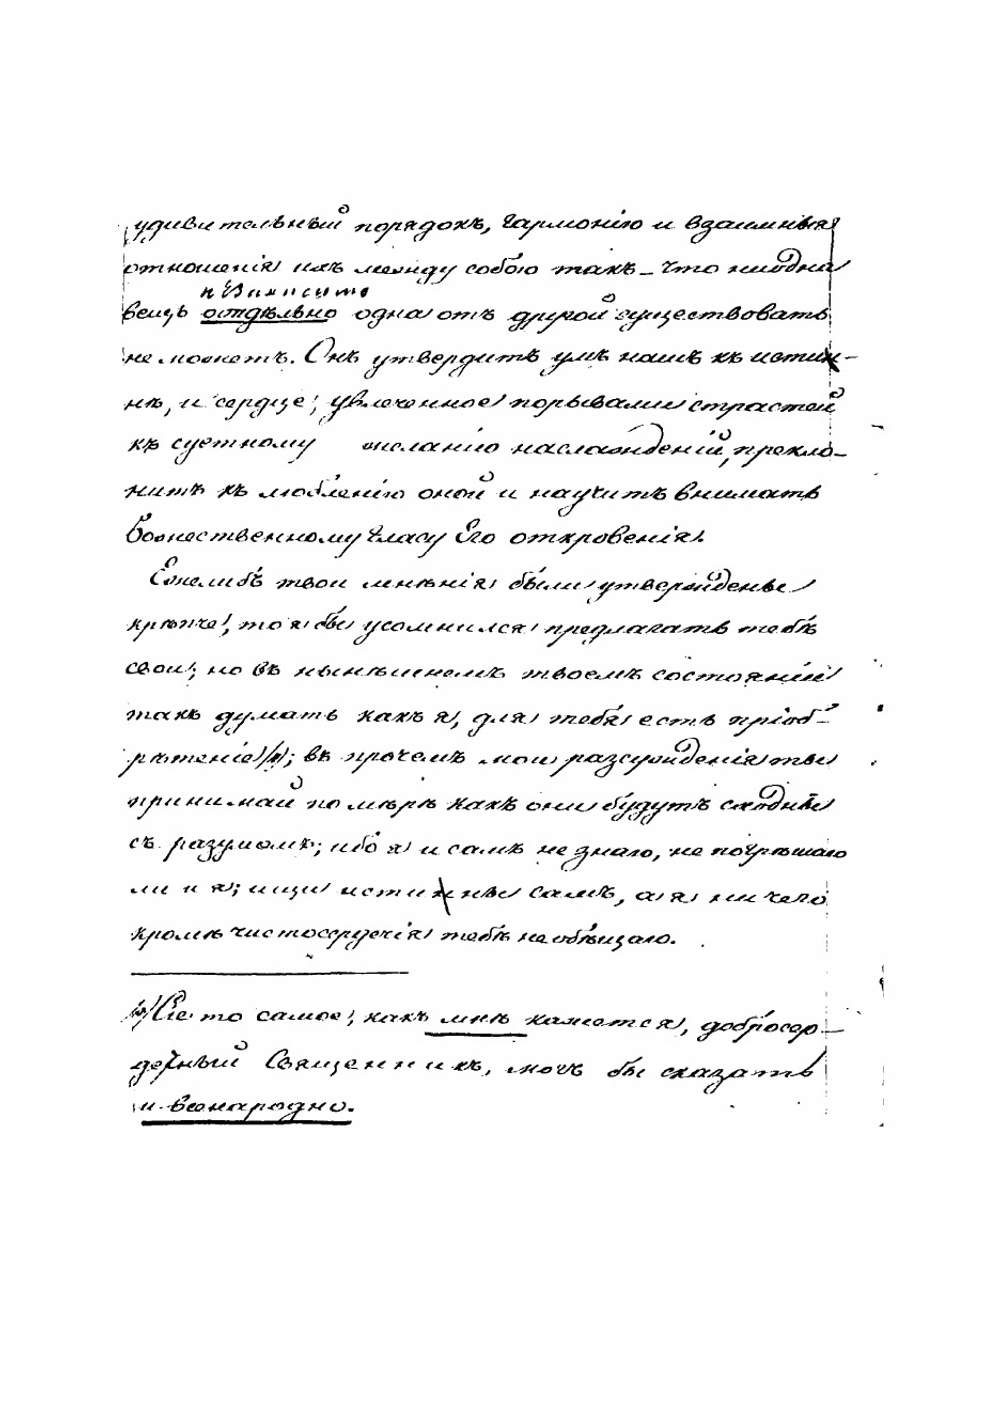 удивительный порядокъ, гармонію и взаимныя
отношенія ихъ между собою такъ-что ниодна
независимо
вещь отдѣльно одна отъ другой существовать
не можетъ. Онъ утвердитъ умъ нашъ къ истин-
нѣ, и сердце, увлеченное порывами страстей
къ суетному желанію наслажденій, прекло-
нитъ къ люблению оной и научитъ внимать
Божественному гласу Его откровенія.
Ежелибъ твои мнѣнія были утверждены
крѣпче, то я бы усомнился предлагать тебѣ
свои; но въ нынѣшнемъ твоемъ состояніи
такъ думать какъ я, для тебя есть пріоб-
рѣтеніе; въ прочемъ мои разсужденія ты
принимай по мѣрѣ какъ они будутъ сходны
съ разумомъ; ибо я и самъ не знаю, не погрѣшаю
ли и я; ищи истинны самъ, а я ничего
кромѣ чистосердечія тебѣ не обѣщаю.
Сіе то самое, какъ мнѣ кажется, добросер-
дечный Священникъ, могъ бы сказать
и всенародно.